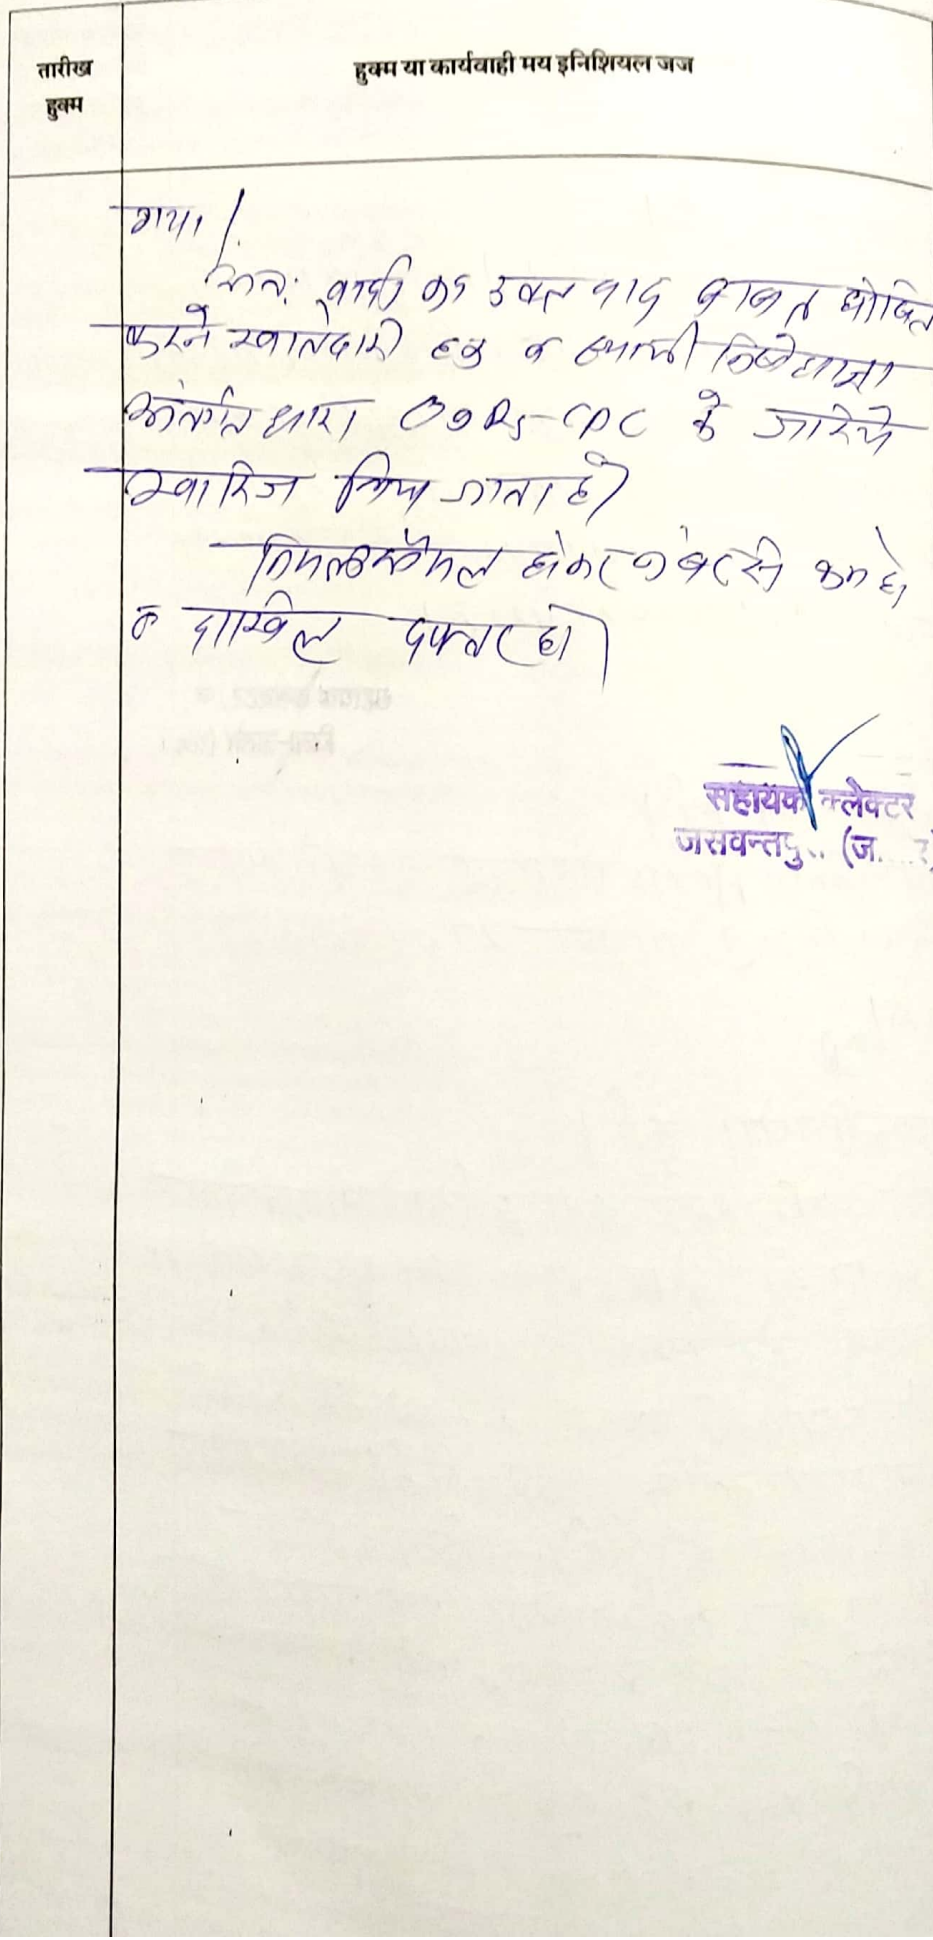 तारीख
हुक्म
हुक्म या कार्यवाही मय इनिशियल जज
गया।
अतः वादी का उक्त वाद बाबत घोषित
करने खातेदारी हक व स्थायी निषेधाज्ञा
अंतर्गत धारा O9R5 CPC के जरिये
खारिज किया जाता है।
फैसल होकर नंबर से कम हो
व दाखिल दफ्तर हो।
सहायक कलेक्टर
जसवन्तपु